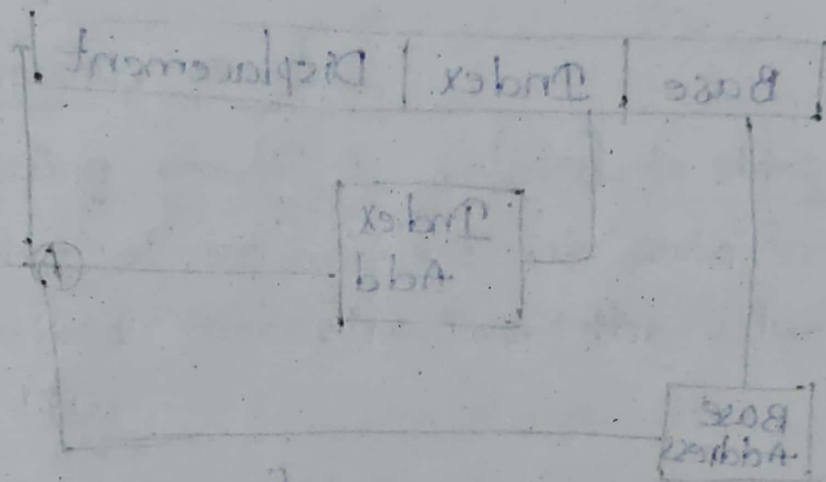 Base | Index | Displacement
Index
Add
Base
Address